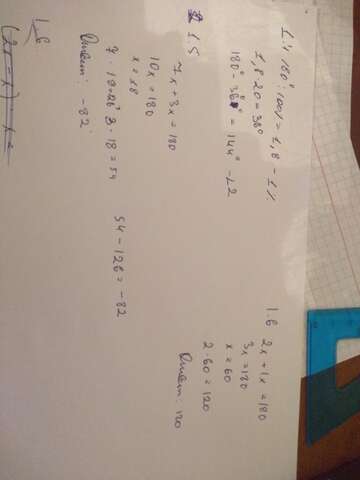 1.4 180°:100%=1,8-1%
1,8·20=36°
180°-36°=144°-L2
1.5
7x+3x=180
10x=180
x=18
7·18=126° 3·18=54
54-126=-82
Ответ: -82°
1.6 2x+1x=180
3x=180
x=60
2·60=120
Ответ: 120
1.6